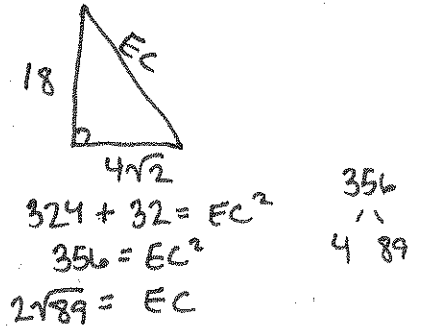 EC
18
4√2
324 + 32 = EC²
356 = EC²
2√89 = EC
356
4 89